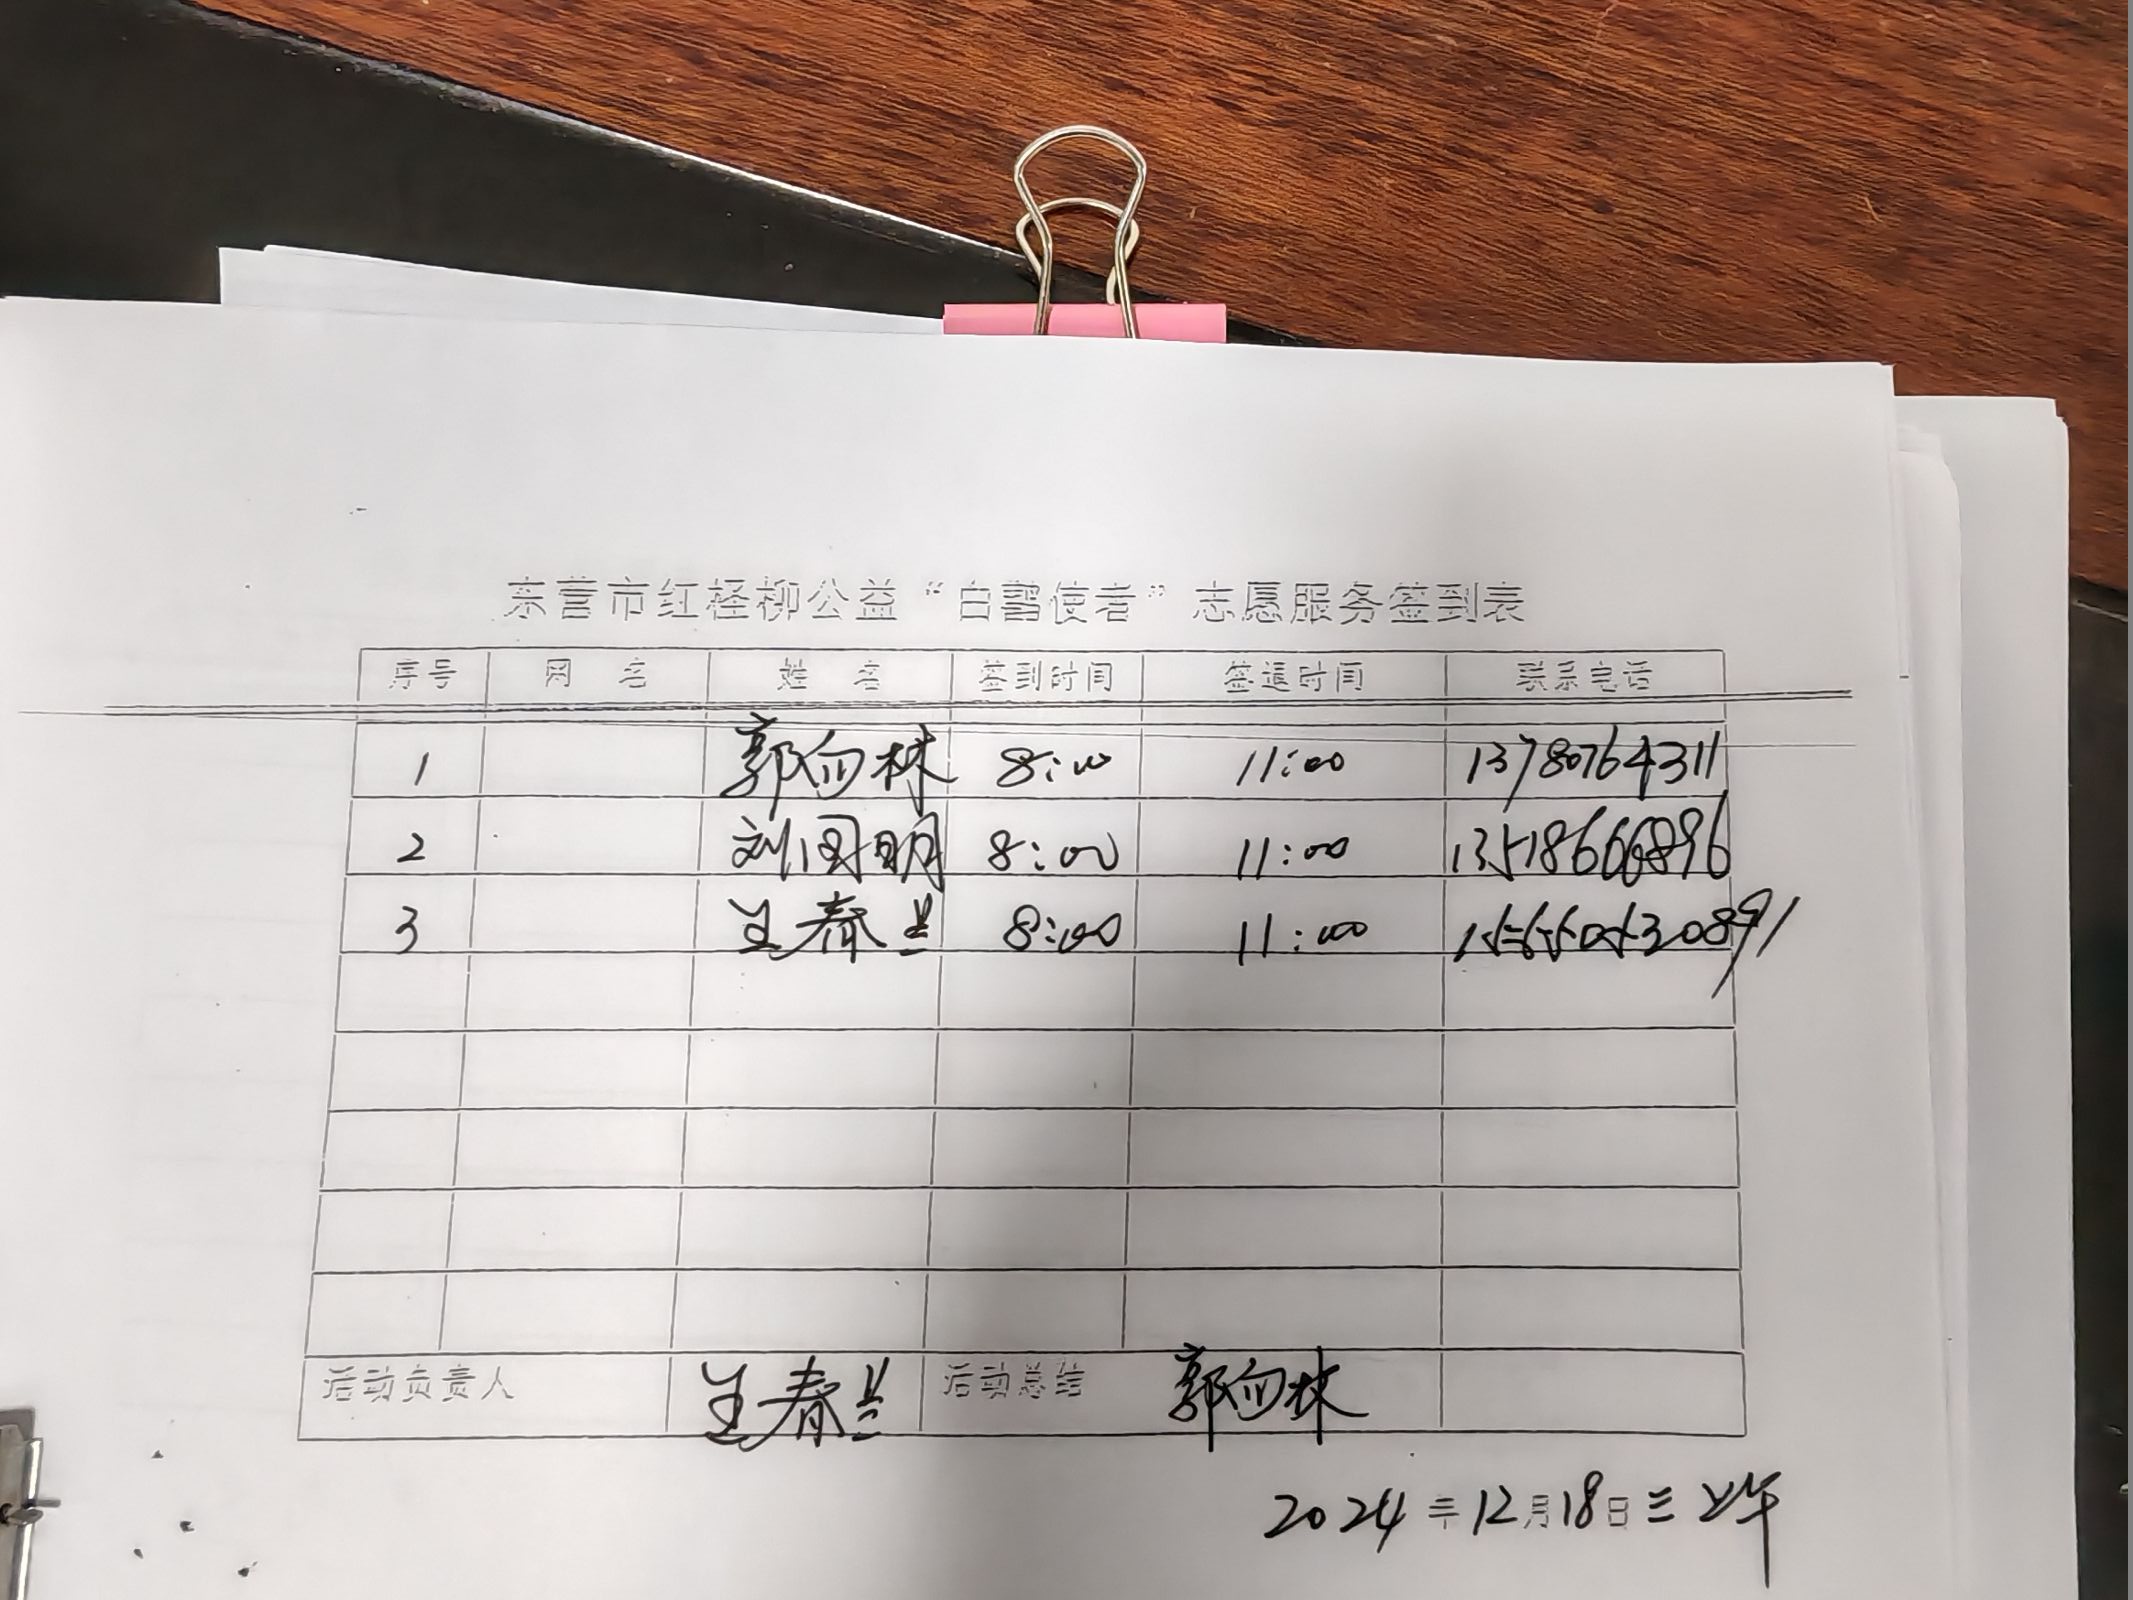 东营市红柽柳公益“白鹳使者”志愿服务签到表
序号 网 名 姓 名 签到时间 签退时间 联系电话
1 郭向林 8:00 11:00 13780764311
2 刘国明 8:00 11:00
3 王春兰 8:00 11:00
活动负责人 王春兰 活动总结 郭向林
2024年12月18日三上午